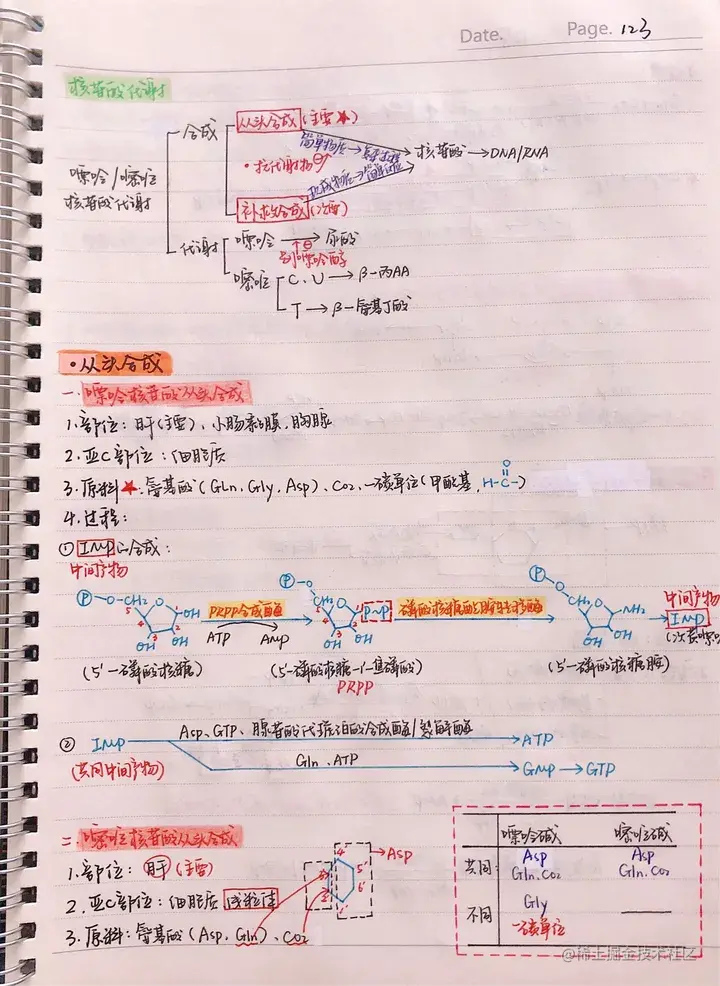 Date.
Page. 123
核苷酸代谢
嘌呤/嘧啶
核苷酸代谢
合成
从头合成(主要★)
简单物质→复杂过程
•抗代谢物⊖
核苷酸→DNA/RNA
现成物质→简单过程
补救合成(次要)
代谢
嘌呤→尿酸
⊖
别嘌呤醇
嘧啶
C、U→β-丙AA
T→β-氨基丁酸
•从头合成
一.嘌呤核苷酸从头合成
1.部位:肝(主要)、小肠黏膜、胸腺
2.亚C部位:细胞质
3.原料★:氨基酸(Gln、Gly、Asp)、CO2、一碳单位(甲酰基,H-C-)
O
4.过程:
①IMP的合成:
中间产物
P-O-CH2 O OH
5' 4' 1' OH OH
PRPP合成酶
ATP AMP
P-O CH2 O P~P
OH OH
磷酸核糖酰胺转移酶
P-O CH2 O NH2
OH OH
中间产物
IMP
(次黄嘌呤
(5'-磷酸核糖)
(5'-磷酸核糖-1'-焦磷酸)
PRPP
(5'-磷酸核糖胺)
②IMP
(共同中间产物)
Asp、GTP、腺苷酸代琥珀酸合成酶/裂解酶
ATP
Gln、ATP
GMP→GTP
二.嘧啶核苷酸从头合成
1.部位:肝(主要)
2.亚C部位:细胞质 线粒体
3.原料:氨基酸(Asp、Gln)、CO2
4' 5' 6' 1' 2' 3'
→Asp
嘌呤碱 嘧啶碱
共同: Asp Asp
Gln.CO2 Gln.CO2
不同 Gly ——
一碳单位
@稀土掘金技术社区